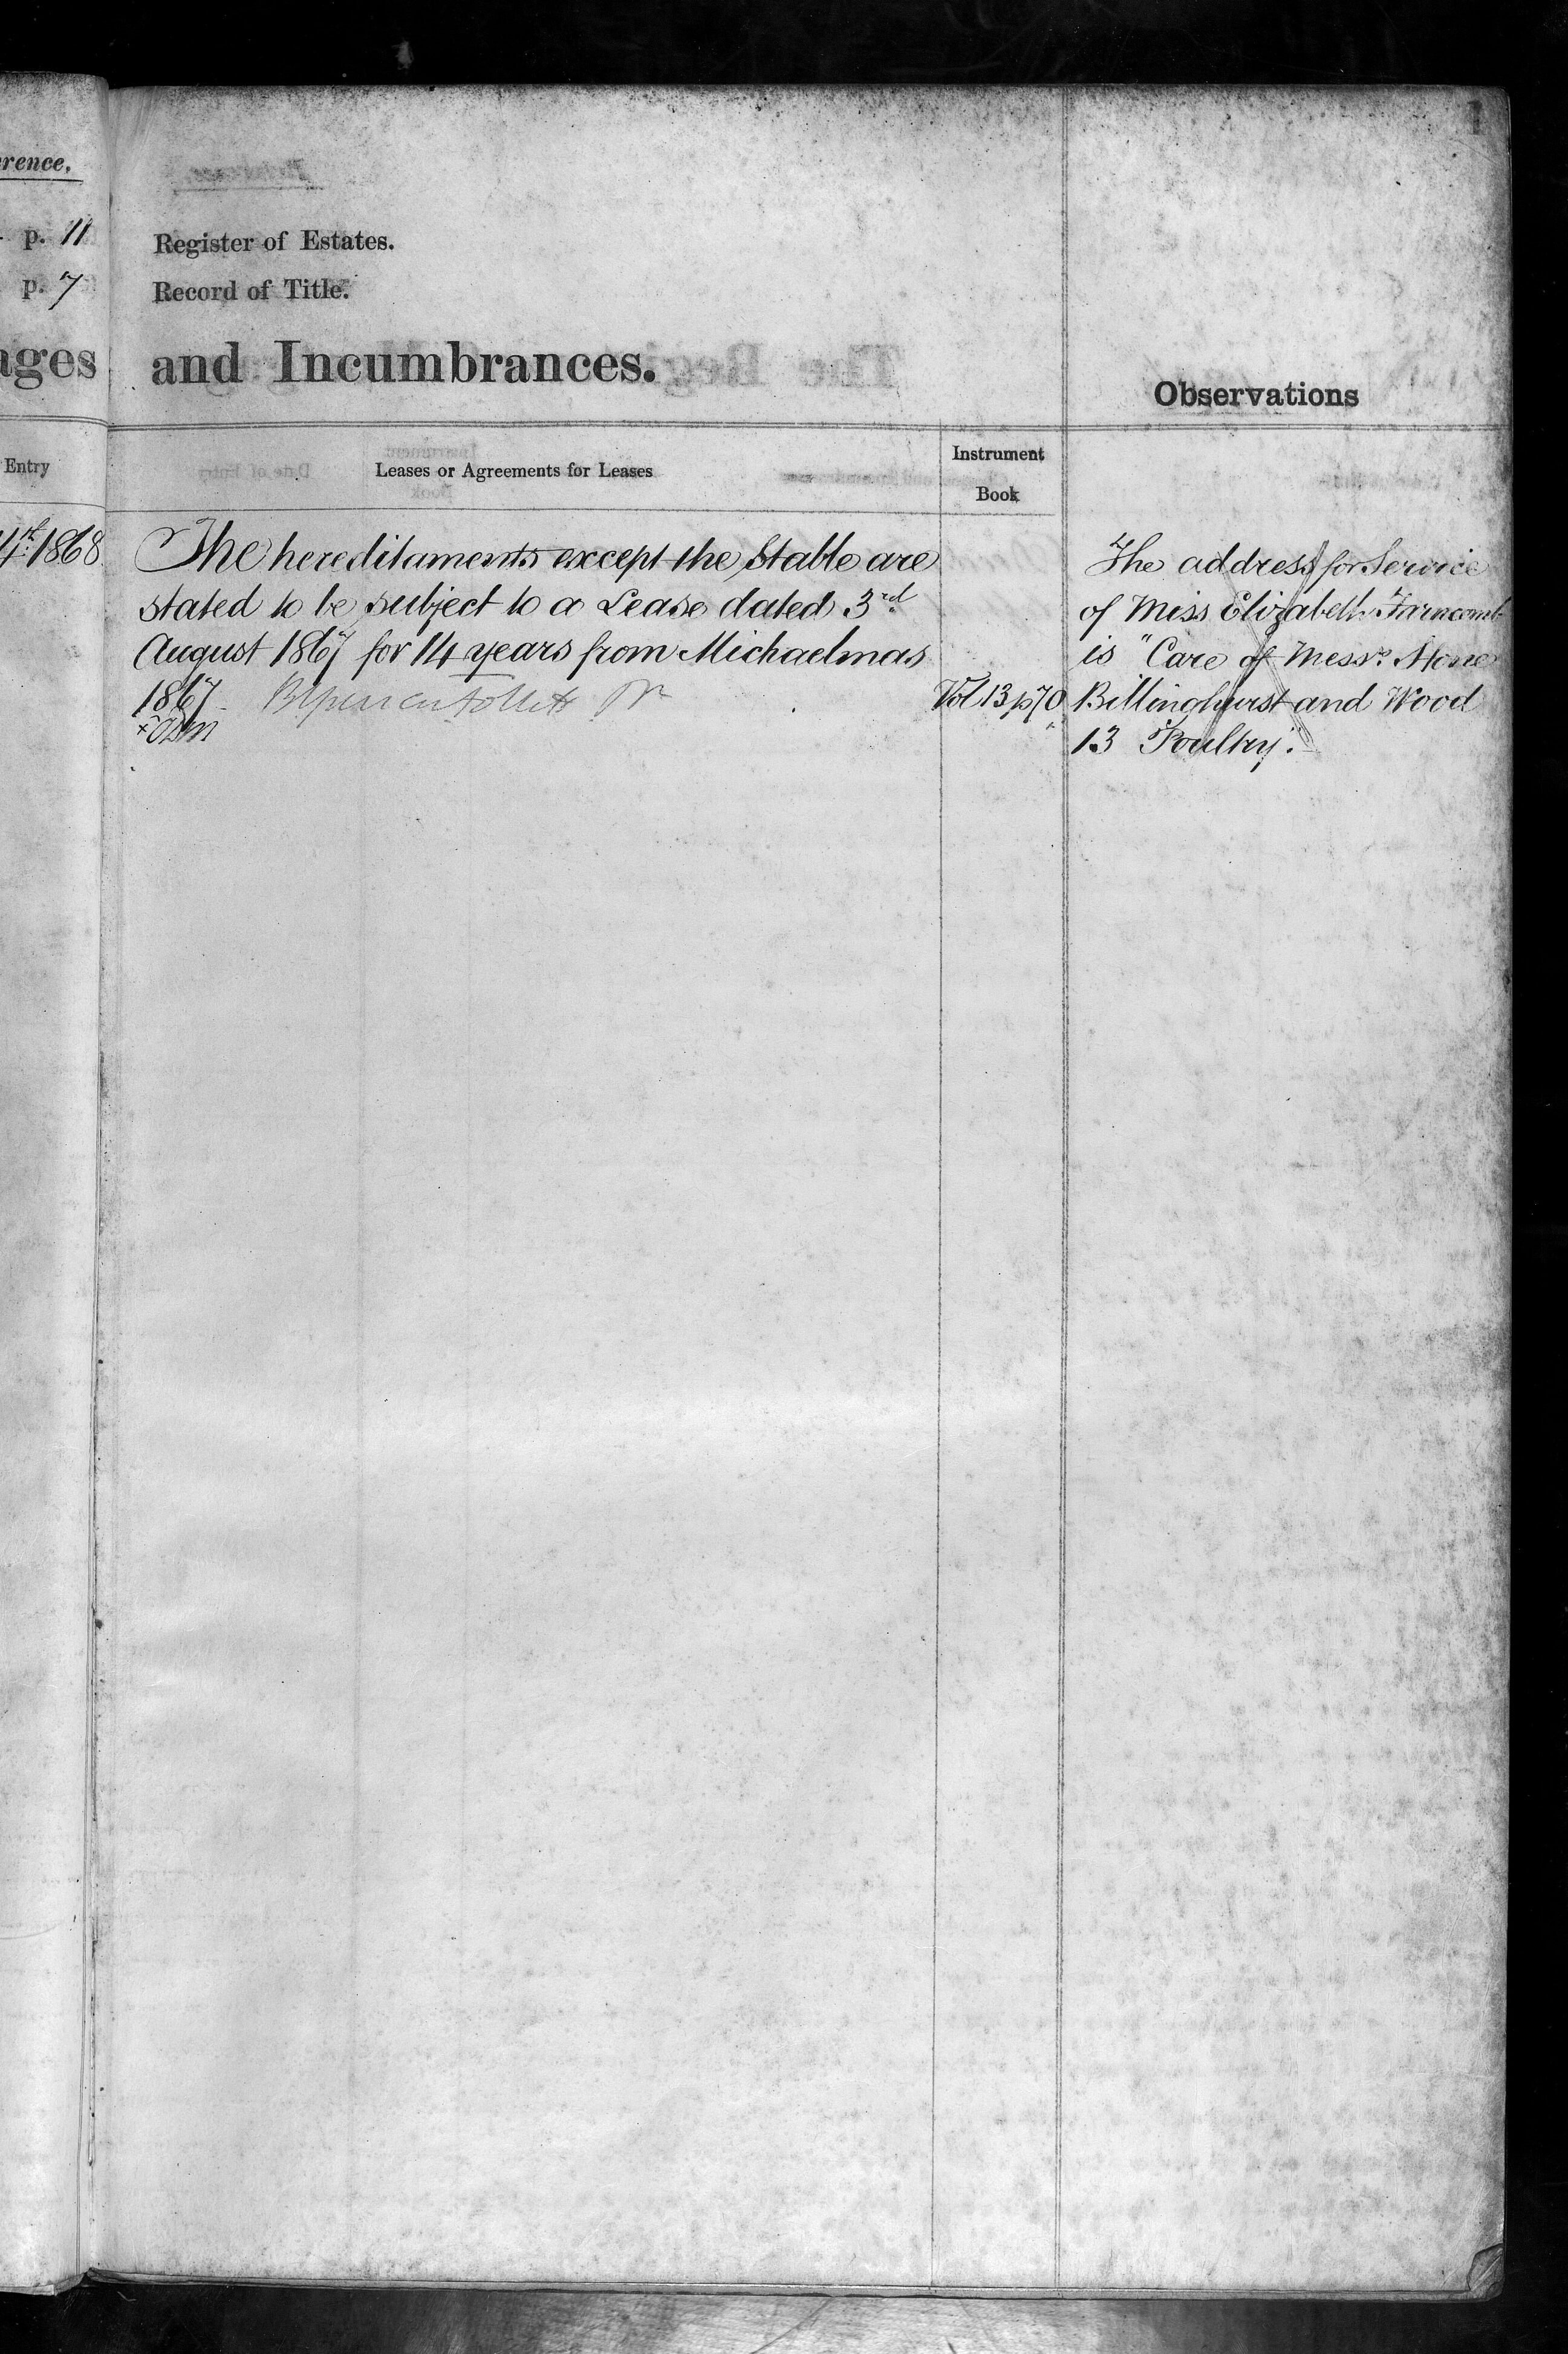 p. 11
p. 7
Entry
1868
Register of Estates.
Record of Title.
and Incumbrances.
Observations
Leases or Agreements for Leases
Instrument
Book
The hereditaments except the Stable are
stated to be subject to a Lease dated 3rd
August 1867 for 14 years from Michaelmas
1867
Vol 13 p 70
The address for Service
of Miss Elizabeth Farncomb
is "Care of Messrs. Stone
Billinghurst and Wood
13 Poultry".